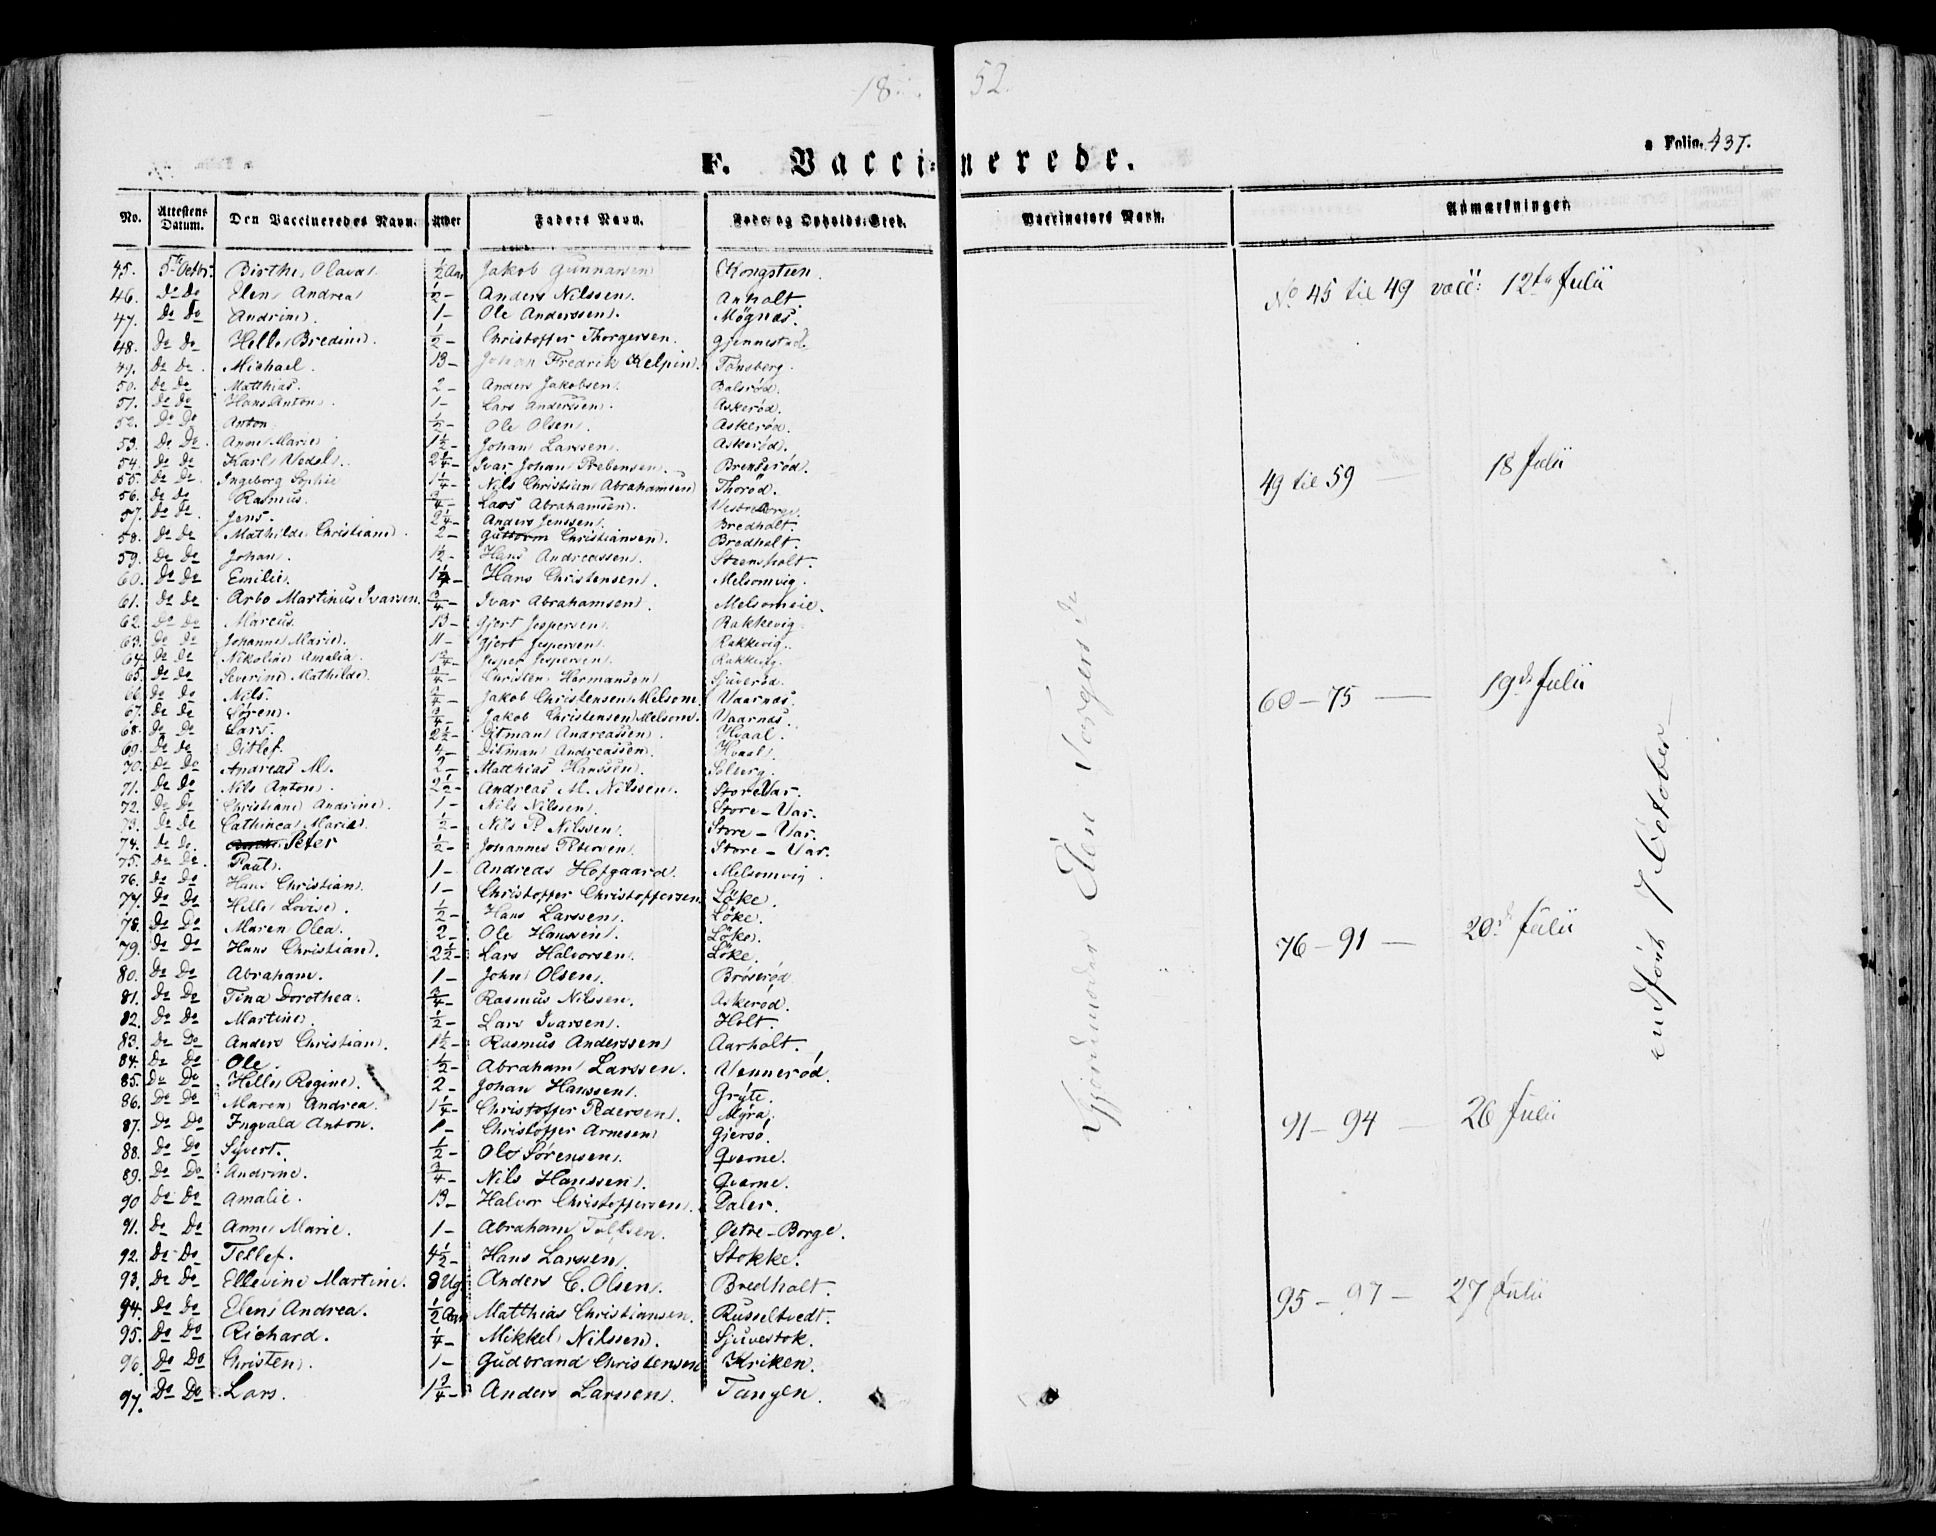 18 52.
a Folio. 437.
F. Vaccinerede.
No. | Attestens Datum. | Den Vaccineredes Navn. | Alder | Faders Navn. | Føde- og Opholds-Sted. | Vaccinators Navn. | Anmærkninger.
45. 5te Octbr. Birthe Olava. ½ Aar Jakob Gunnarsen Kongsteen.
46. Do Do Elen Andrea ½ – Anders Nilssen. Anholt.
47. Do Do Andrine. 1 – Ole Anderssen. Møgnæs.
48. Do Do Helle Bredine. ½ – Christoffer Thorgersen. Gjennestad.
49. Do Do Michael. 13 – Johan Fredrik Kelpin. Tønsberg.
50. Do Do Matthias. 2 – Anders Jakobsen. Bolsrød.
51. Do Do Hans Anton. 1 – Lars Anderssen. Askerød.
52. Do Do Anton. ½ – Ole Olsen. Askerød.
53. Do Do Anne Marie. 1½ – Johan Larssen. Askerød.
54. Do Do Karl Vedel. 2¼ – Ivar Johan Prebensen. Brenserød.
55. Do Do Ingeborg Sophie 1¼ – Nils Christian Abrahamsen Thorød.
56. Do Do Rasmus. ¾ – Lars Abrahamsen. Vestre Borge.
57. Do Do Jens. 2¼ – Anders Jenssen. Bredholt.
58. Do Do Mathilde Christiane. 2 – Guttorm Christiansen. Bredholt.
59. Do Do Johan. 1½ – Hans Andreassen. Steensholt.
60. Do Do Emilie. 1¼ – Hans Christensen. Melsomvig.
61. Do Do Arbo Martinus Ivarsen. ¾ – Ivar Abrahamsen. Melsomeie.
62. Do Do Marcus. 13 – Gjert Jespersen. Rakkevig.
63. Do Do Johanne Marie. 11 – Gjert Jespersen. Rakkevig.
64. Do Do Nikoline Amalia. 1¾ – Jesper Jespersen. Rakkevig.
65. Do Do Severine Mathilde. ¾ – Christen Hermansen Sjuverød.
66. Do Do Nils. ¾ – Jakob Christensen Melsom. Vaarnæs.
67. Do Do Søren. ¾ – Jakob Christensen Melsom. Vaarnæs.
68. Do Do Lars. 2½ – Ditman Andreassen. Hvaal.
69. Do Do Ditlef. 4 – Ditman Andreassen. Hvaal.
70. Do Do Andreas M. 2 – Matthias Hanssen. Solberg.
71. Do Do Nils Anton. 2½ – Andreas M. Nilssen. Store Var.
72. Do Do Christiane Andrine. 1 – Nils Nilssen. Store – Var.
73. Do Do Cathinca Marie. ½ – Nils P. Nilssen. Store – Var.
74. Do Do Peter ½ – Johannes Petersen. Store – Var.
75. Do Do Paul. 1 – Andreas Hofgaard. Melsomvig
76. Do Do Hans Christian. 1 – Christoffer Christoffersen. Løke.
77. Do Do Helle Lovise. ½ – Hans Larssen. Løke.
78. Do Do Maren Olea. 2 – Ole Hanssen. Løke.
79. Do Do Hans Christian. 2½ – Lars Halvorsen. Løke.
80. Do Do Abraham. 1 – John Olsen. Brøserød
81. Do Do Tina Dorothea. ¾ – Rasmus Nilssen. Askerød.
82. Do Do Martine. ½ – Lars Ivarsen. Holt.
83. Do Do Anders Christian. 1½ – Rasmus Anderssen Aarholt.
84. Do Do Ole. ½ – Abraham Larssen. Vennerød.
85. Do Do Helle Regine. 2 – Johan Hanssen. Gryte.
86. Do Do Maren Andrea. 1¼ – Christoffer Pedersen. Myra.
87. Do Do Ingvald Anton. 1 – Christoffer Arnesen Gjersø.
88. Do Do Syvert. ½ – Ole Sørensen. Qværne.
89. Do Do Andrine. ¾ – Nils Hanssen. Qværne.
90 Do Do Amalie. 13 – Halvor Christoffersen. Daler.
91. Do Do Anne Marie. 1 – Abraham Tollsen. Østre – Borge.
92. Do Do Tellef. 4½ – Hans Larssen. Stokke.
93. Do Do Ellevine Martine. 8 Ug Anders C. Olsen. Bredholt.
94. Do Do Elen Andrea. ½ Aar Matthias Christiansen. Russeltvedt.
95. Do Do Richard. ¼ – Mikkel Nilssen. Sjuvestok.
96. Do Do Christen. 1 – Gudbrand Christensen Kriken.
97. Do Do Lars. 1¾ – Anders Larssen. Tangen.
Gjordemoder Elen
No 45 til 49 vacc: 12te Julii
49 til 59 — 18 Julii
60 – 75 — 19de Julii
76 – 91 — 20de Julii
91 – 94 — 26 Julii
95 – 97 – 27 Julii
indført 7 October –